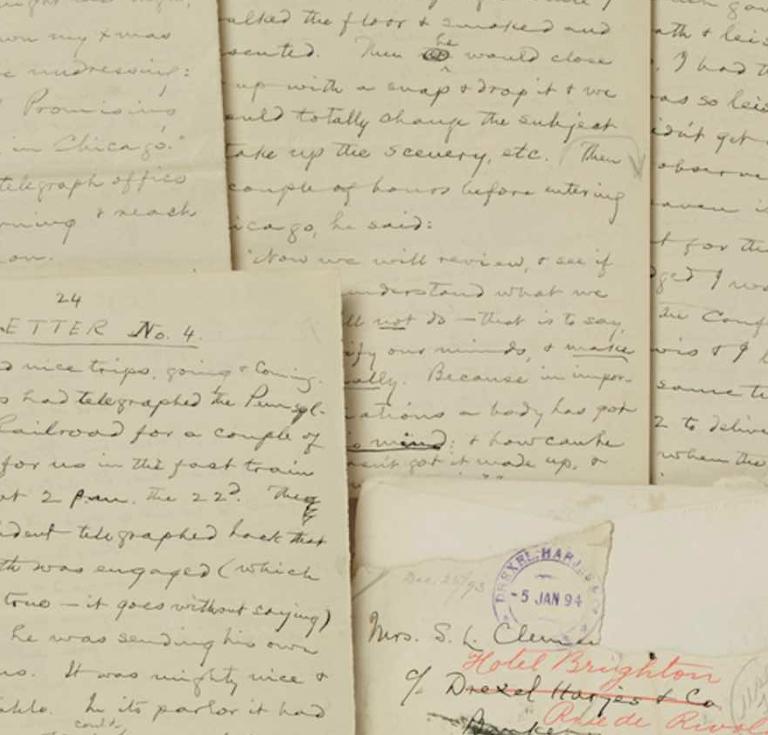 own my xmas
undressing:
Promising
in Chicago."
telegraph office
rning & reach
on.
alked the floor & smoked and
sented. Then he would close
up with a snap & drop it & we
ould totally change the subject
take up the scenery, etc. Then
couple of hours before entering
icago, he said:
"Now we will review, & see if
understand what we
ll not do — that is to say,
ify our minds, & make
ally. Because in impor-
ations a body has got
is mind; & how can he
n't got it made up, or
I had t
as so leis
idn't get
observe
t for the
ged I wo
the Conf
same t
2 to delive
when the
24
ETTER No. 4.
d nice trips, going & coming.
s had telegraphed the Pennsyl-
Railroad for a couple of
for us in the fast train
at 2 p.m. the 22d. The
ident telegraphed back that
th was engaged (which
true — it goes without saying)
he was sending his own
us. It was mighty nice &
able. In its parlor it had
could
Dec. 25/93
DREXEL HARJES & Co
-5 JAN 94
Mrs. S. L. Clemen
Hotel Brighton
c/o Drexel Harjes & Co
Rue de Rivol
Bankers